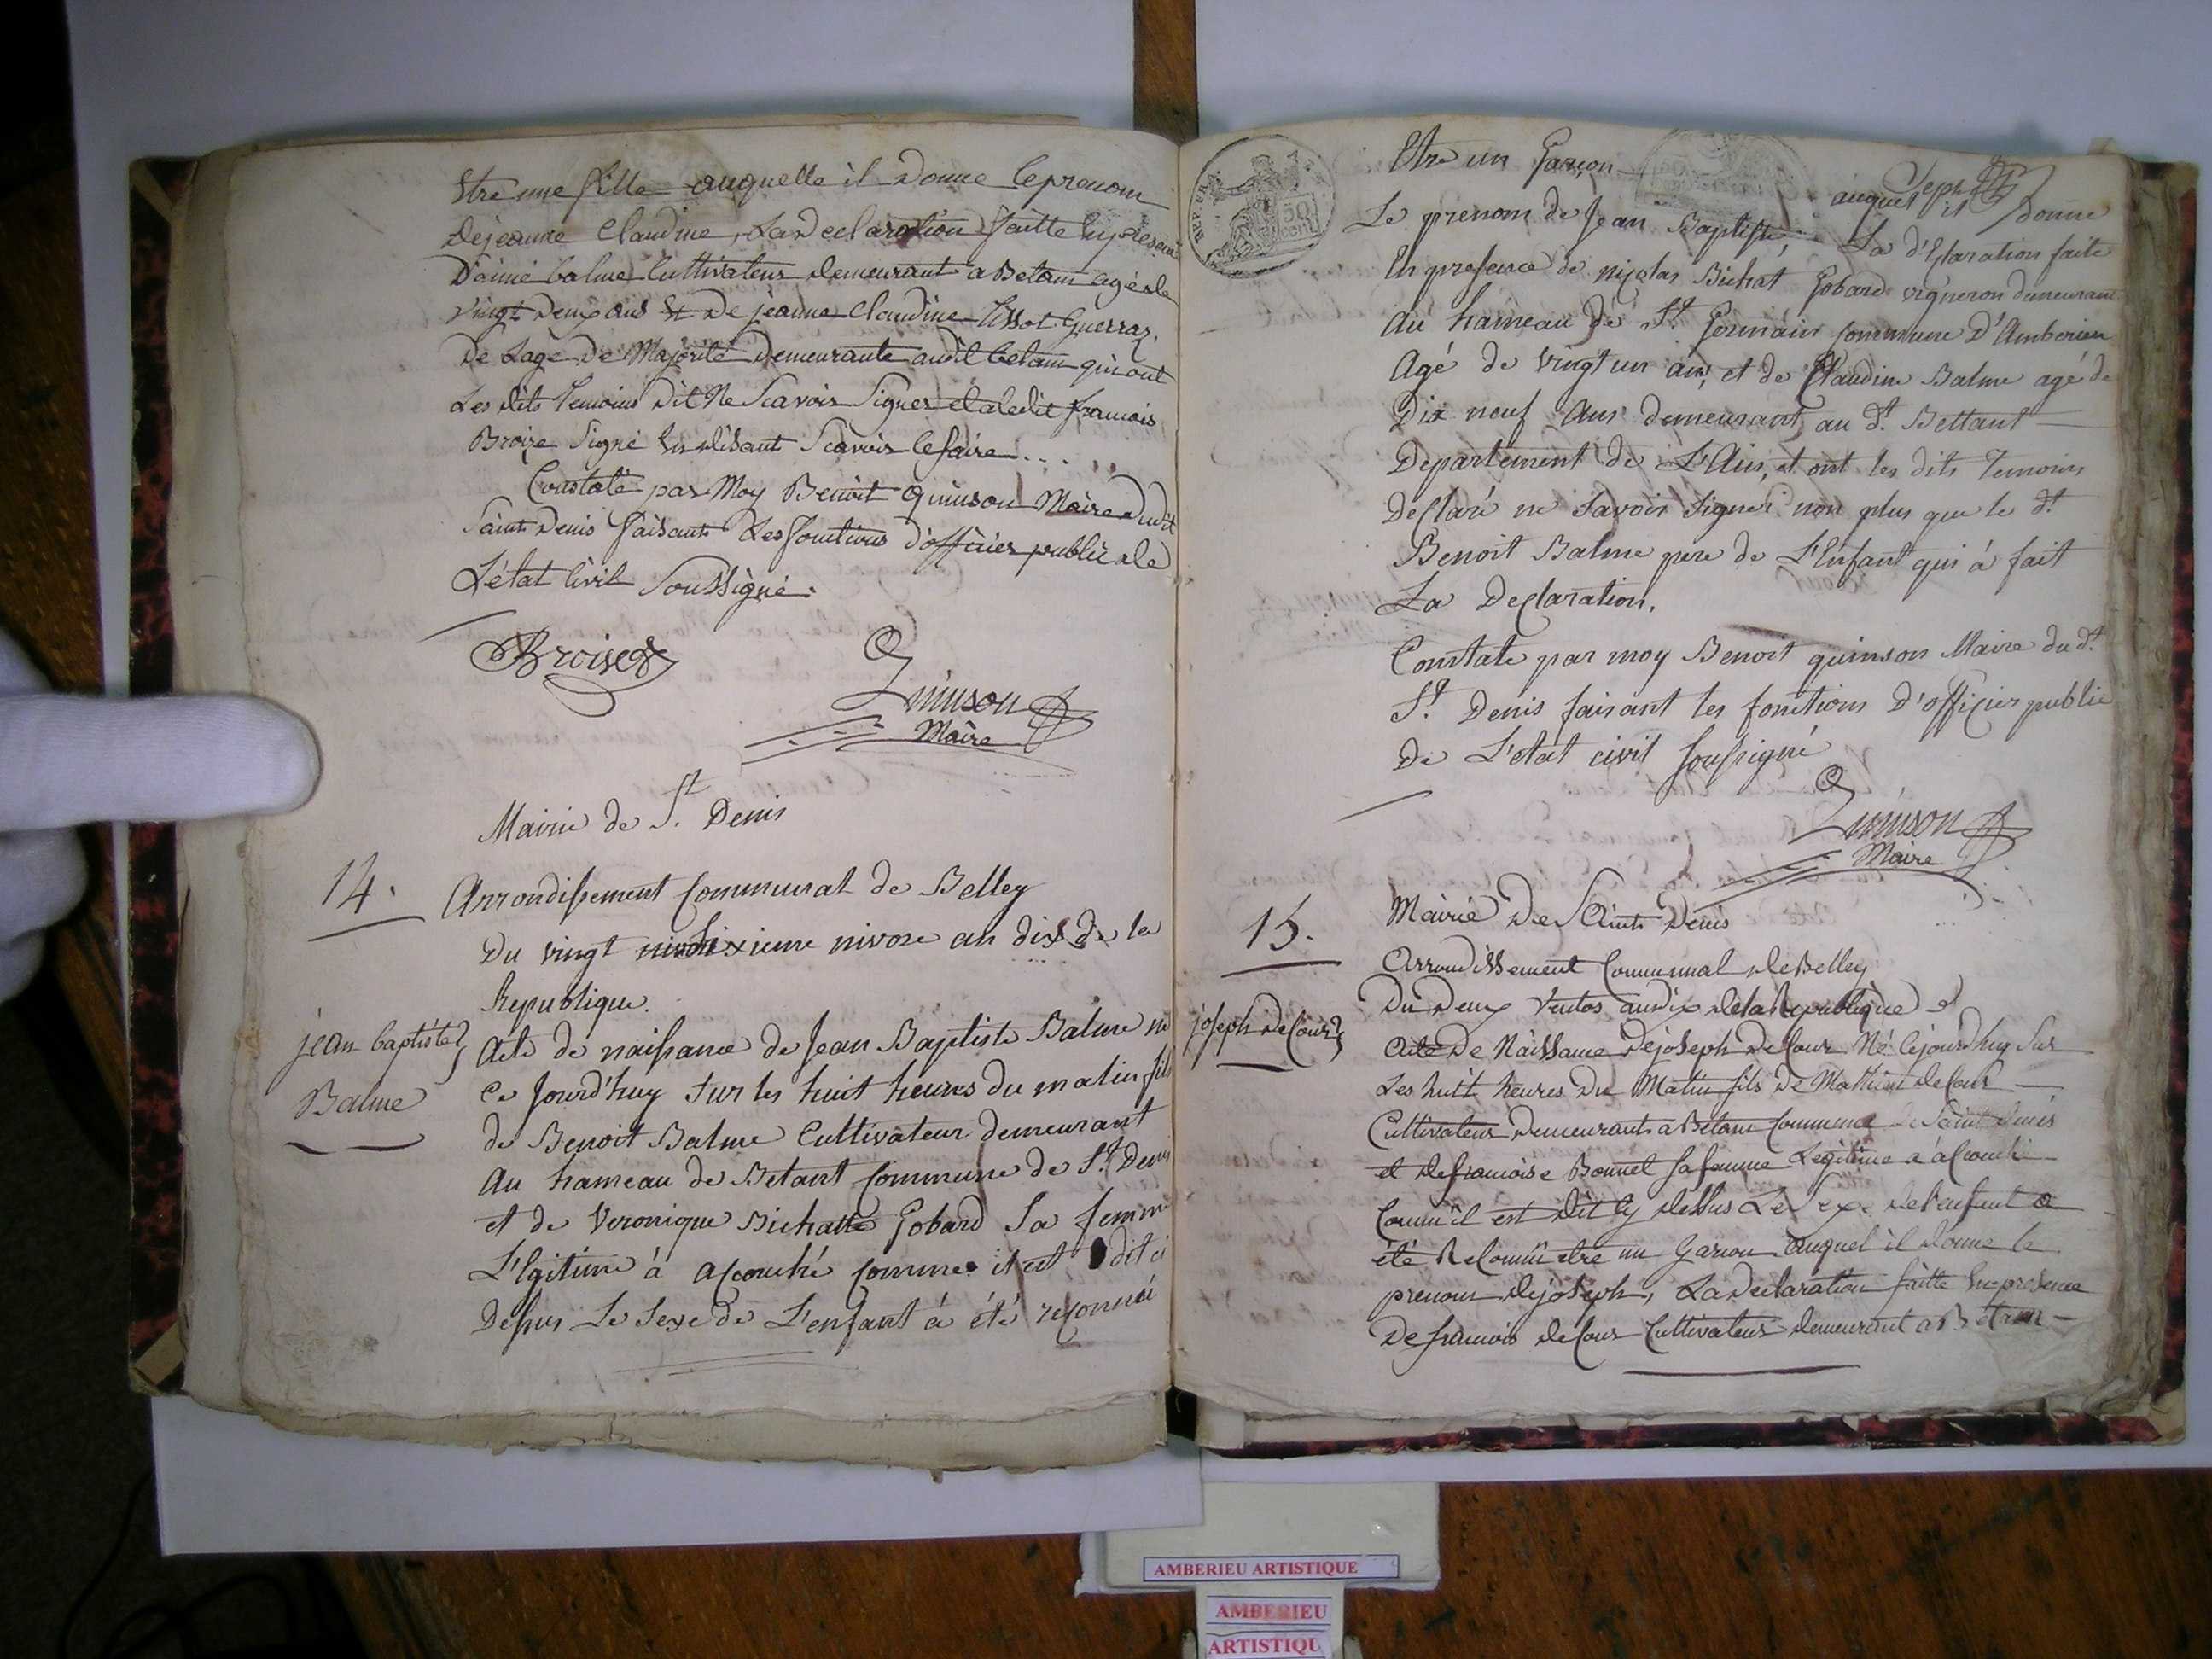 Etre une fille auquelle il donne le prenom
de jeanne Claudine, La declaration faitte En presence
D'aimé balme Cultivateur demeurant a Betam agé de
vingt deux ans Et De jeanne Claudine Tissot Guerraz
De Lage De Majorité demeurante audit betam qui ont
Les dits temoins dit Ne Scavoir Signer et a ledit francois
Broise Signé En disant Scavoir le faire....
Constaté par Moy Benoit Quinson Maire dudit
Saint Denis faisant Les fonctions d'officier public de
L'état Civil Soussigné.
Broise
Quinson
Maire
Mairie de St. Denis
14.
Arrondissement Communal de Belley
Du vingt sixieme nivose an dix de la
Republique.
jean baptiste
Balme
Acte de naissance de Jean Baptiste Balme né
Ce Jourd'huy sur les huit heures du matin fils
de Benoit Balme Cultivateur demeurant
Au hameau de Betant Commune de St. Denis
et de Veronique Bichatte Gobard Sa femme
L'Egitime à acouché comme il est dit ci
Dessus Le Sexe de L'enfant à été reconnu
Etre un Garçon auquel il donne
Le prenom de Jean Baptiste, La d'Eclaration faite
En presence de nicolas Bichat Gobard vigneron demeurant
Au hameau de St. Germain commune D'Amberieu
Agé de vingt un ans, et de Claudine Balme agé de
Dix neuf Ans demeurant au dt. Bettant
Departement de L'Ain, et ont les dits Temoins
Declaré ne savoir signer non plus que le dt.
Benoit Balme pere de L'Enfant qui à fait
La Declaration.
Constaté par moy Benoit quinson Maire du dt.
St. Denis faisant les fonctions D'officier public
De L'etat civil soussigné
Quinson
Maire
15.
Mairie De Saint Denis
Arrondissement Communal de Belley
Du Deux Ventos an dix de la Republique
joseph deCour
Acte De Naissance de joseph deCour Né Cejourdhuy Sur
Les huit heures Du Matin fils De Mathieu deCour
Cultivateur Demeurant a Betam Commune de Saint Denis
et de francoise Bonnet Sa femme Legitime a acouché
Comme il est Dit Cy dessus Le Sexe de l'enfant a
été Reconnu etre un Garcon auquel il donne le
prenom de joseph, La declaration faitte En presence
De francois deCour Cultivateur demeurant a Betam
AMBERIEU ARTISTIQUE
AMBERIEU
ARTISTIQU